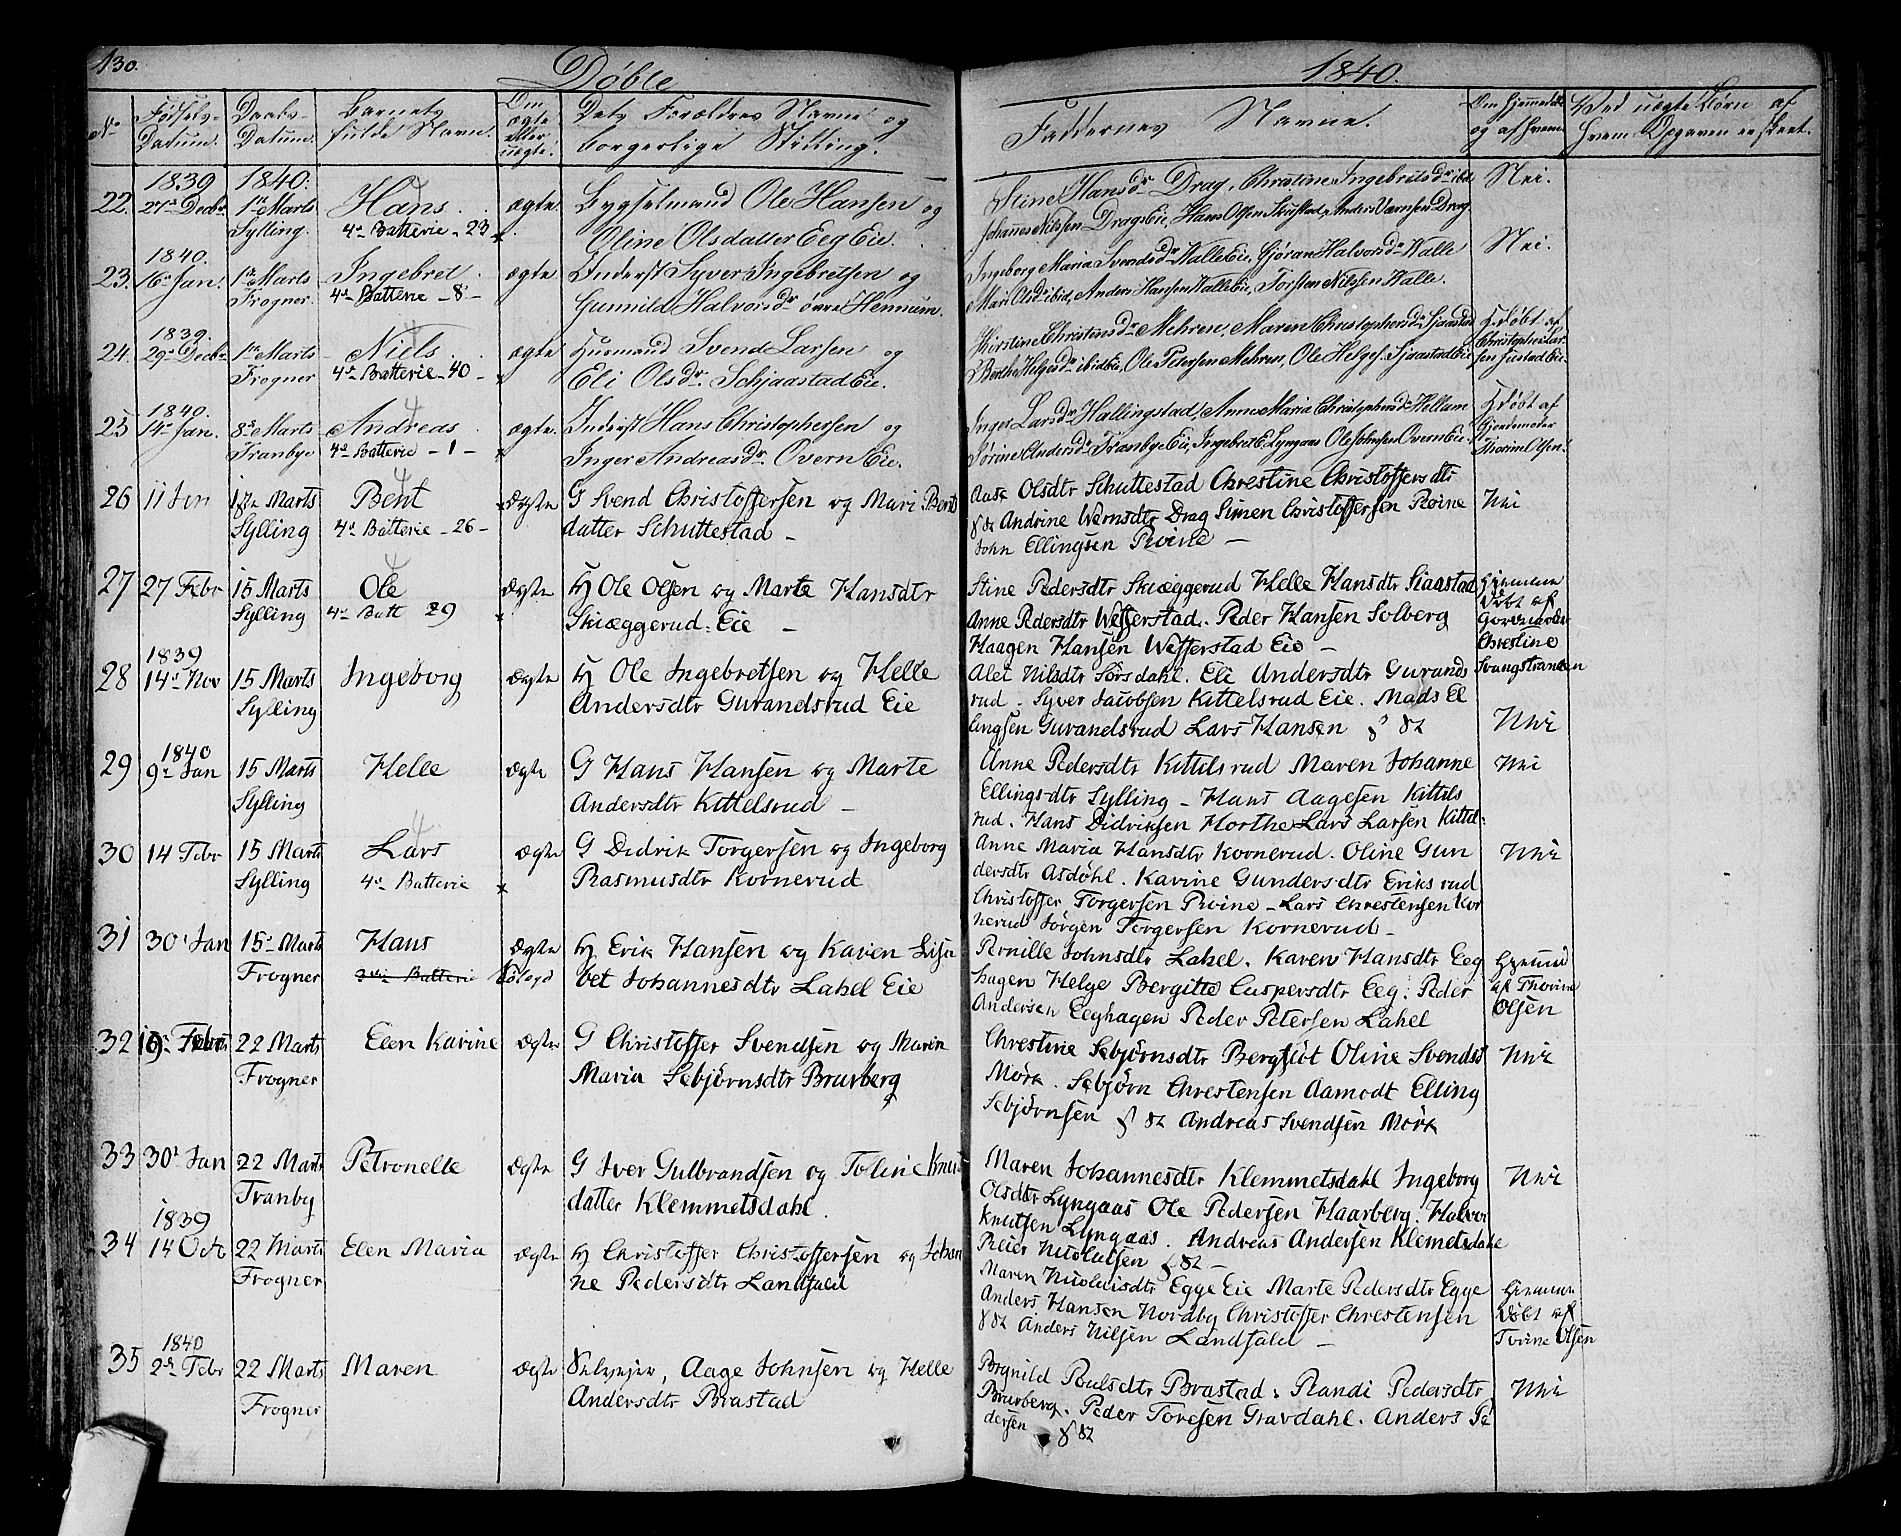 130.
Døbte
No
Fødsels-
Datum.
Daabs-
Datum.
Barnets
fulde Navn.
Om
ægte
eller
uægte.
Dets Forældres Navne og
borgerlige Stilling.
22.
1839
27de Decbr
1840.
1ste Marts
Sylling.
Hans
4de Batterie - 23
ægte.
Bygselmand Ole Hansen og
Oline Olsdatter Eeg Eie.
23.
1840.
16de Jan.
1ste Marts
Frogner
Ingebret
4de Batterie - 8 -
ægte.
Inderst Syver Ingebretsen og
Gunnild Halvorsdr øvre Hennum.
24.
1839.
29de Decbr
1ste Marts
Frogner
Niels
4de Batterie - 40 -
ægte
Husmand Svend Larsen og
Eli Olsdr. Schjaastad Eie.
25
1840.
14de Jan.
8de Marts
Tranbye
Andreas
4de Batterie - 1 -
ægte.
Inderst Hans Christophersen og
Inger Andreasdr. Overn Eie.
26
11 Jan
Marts
Sylling
Bent
4de Batterie - 26 -
Ægte
G Svend Christoffersen og Mari Bents
datter Schuttestad -
27
27 Febr
15 Marts
Sylling
Ole
4de Batt 29
Ægte
H Ole Olsen og Marte Hansdtr
Skiæggerud Eie -
28
1839
14de Nov
15 Marts
Sylling
Ingeborg
Ægte
H Ole Ingebretsen og Helle
Andersdtr Gurandsrud Eie
29
1840
9de Jan
15 Marts
Sylling
Helle
Ægte
G Hans Hansen og Marte
Andersdtr Kittelsrud -
30
14 Febr
15 Marts
Sylling
Lars
4de Batterie
Ægte
G Didrik Torgersen og Ingeborg
Rasmusdtr Kornerud
31
30 Jan
15 Marts
Frogner
Hans
Batteri
Ægte
H Erik Hansen og Karen Lisa
bet Johannesdtr Lahel Eie
32
Febr
22 Marts
Frogner
Elen Karine
Ægte
G Christoffer Svendsen og Maren
Maria Sebjørnsdtr Brurberg
33
30 Jan
22 Marts
Tranby
Petronelle
Ægte
G Iver Gulbrandsen og Toline Knu
datter Klemmetsdahl.
34
1839
14 Octo
22 Marts
Frogner
Elen Maria
Ægte
H Christoffer Christoffersen og Johan
ne Pedersdtr Landfald
35
1840
2de Febr
22 Marts
Frogner
Maren
Ægte
Selveier, Aage Johnsen og Helle
Andersdtr Brastad
1840.
Faddernes Navne.
Om Hjemmedøbt
og af hvem
Ved uægte Børn af
hvem Opgaven er skeet.
Stine Hansdr Drag, Christine Ingebretsdr ibd
Johannes Nilsen Drags Eie, Hans Olsen Skustad, Anders Værnsen Drag.
Nei.
Ingeborg Maria Svendsdr Kalle Eie, Gjøran Halvorsdr Kalle
Mari Olsdr ibid, Anders Hansen Kalle Eie, Torsten Nilssen Kalle.
Nei.
Kirstine Christensdr Mehren, Maren Christophersdr Sjaastad
Berthe Helgesdr ibid Eie, Ole Petersen Mehren, Ole Helges. Sjaastad Eie
Hdøbt af
Christopher Lar-
sen Siestad Eie.
Inger Larsdr Hallingstad, Anne Maria Christophersdr Hellum
Sørine Andersdr Tranbye Eie, Ingebret E. Lyngaas Ole Johnsen Overn Eie.
Hdøbt af
Gjordemoder
Thorine Olsen.
Aase Olsdtr Schuttestad Chrestine Christoffersdtr
Andrine Wernsdtr Drag Simen Christoffersen Roine
John Ellingsen Roine -
Nei
Stine Pedersdtr Skiæggerud Helle Hansdtr Siaastad
Anne Pedersdtr Wefferstad. Peder Hansen Solberg
Haagen Hansen Wefferstad Eie -
Hjemme
døbt af
Gordemoder
Chrestine
Svangstranden
Alet Nilsdtr Sørsdahl. Eli Andersdtr Gurands
rud. Syver Jacobsen Kittelsrud Eie. Mads El
lingsen Gurandsrud Lars Hansen
Nei
Anne Pedersdtr Kittelsrud Maren Johanne
Ellingsdtr Sylling - Hans Aagesen Kittels
rud. Hans Didriksen Horthe Lars Larsen Kittel-
Nei
Anne Maria Hansdtr Kornerud. Oline Gun
dersdtr Asdøhl. Karine Gundersdtr Eriksrud
Christoffer Torgersen Roine - Lars Chrestensen Kor
nerud Jørgen Torgersen Kornerud -
Nei
Pernille Johnsdtr Lahel. Karen Hansdtr Eeg
hagen Helge Bergitte Caspersdtr Eeg. Peder
Andersen Eeghagen Peder Petersen Lahel
af Thorine
Olsen
Chrestine Sebjørnsdtr Bergflot Oline Svends
Mørk. Sebjørn Chrestensen Aamodt Elling
Sebjørnsen Andreas Svendsen Mørk
Nei
Maren Johannesdtr Klemmetsdahl Ingeborg
Olsdtr Lyngaas Ole Pedersen Haarberg. Halvor
Knutsen Lyngaas. Andreas Andersen Klemetsdahl
Reier Nicolaisen
Nei
Maren Nicolaisdtr Egge Eie Marte Pedersdtr Egge
Anders Hansen Nordby Christoffer Chrestensen
Anders Nilsen Landfald -
Hjemme
døbt af
Torine Olsen
Ragnild Poulsdtr Brastad. Randi Pedersdtr
Brurberg. Peder Toresen Gravdahl. Anders Pe
dersen
Nei